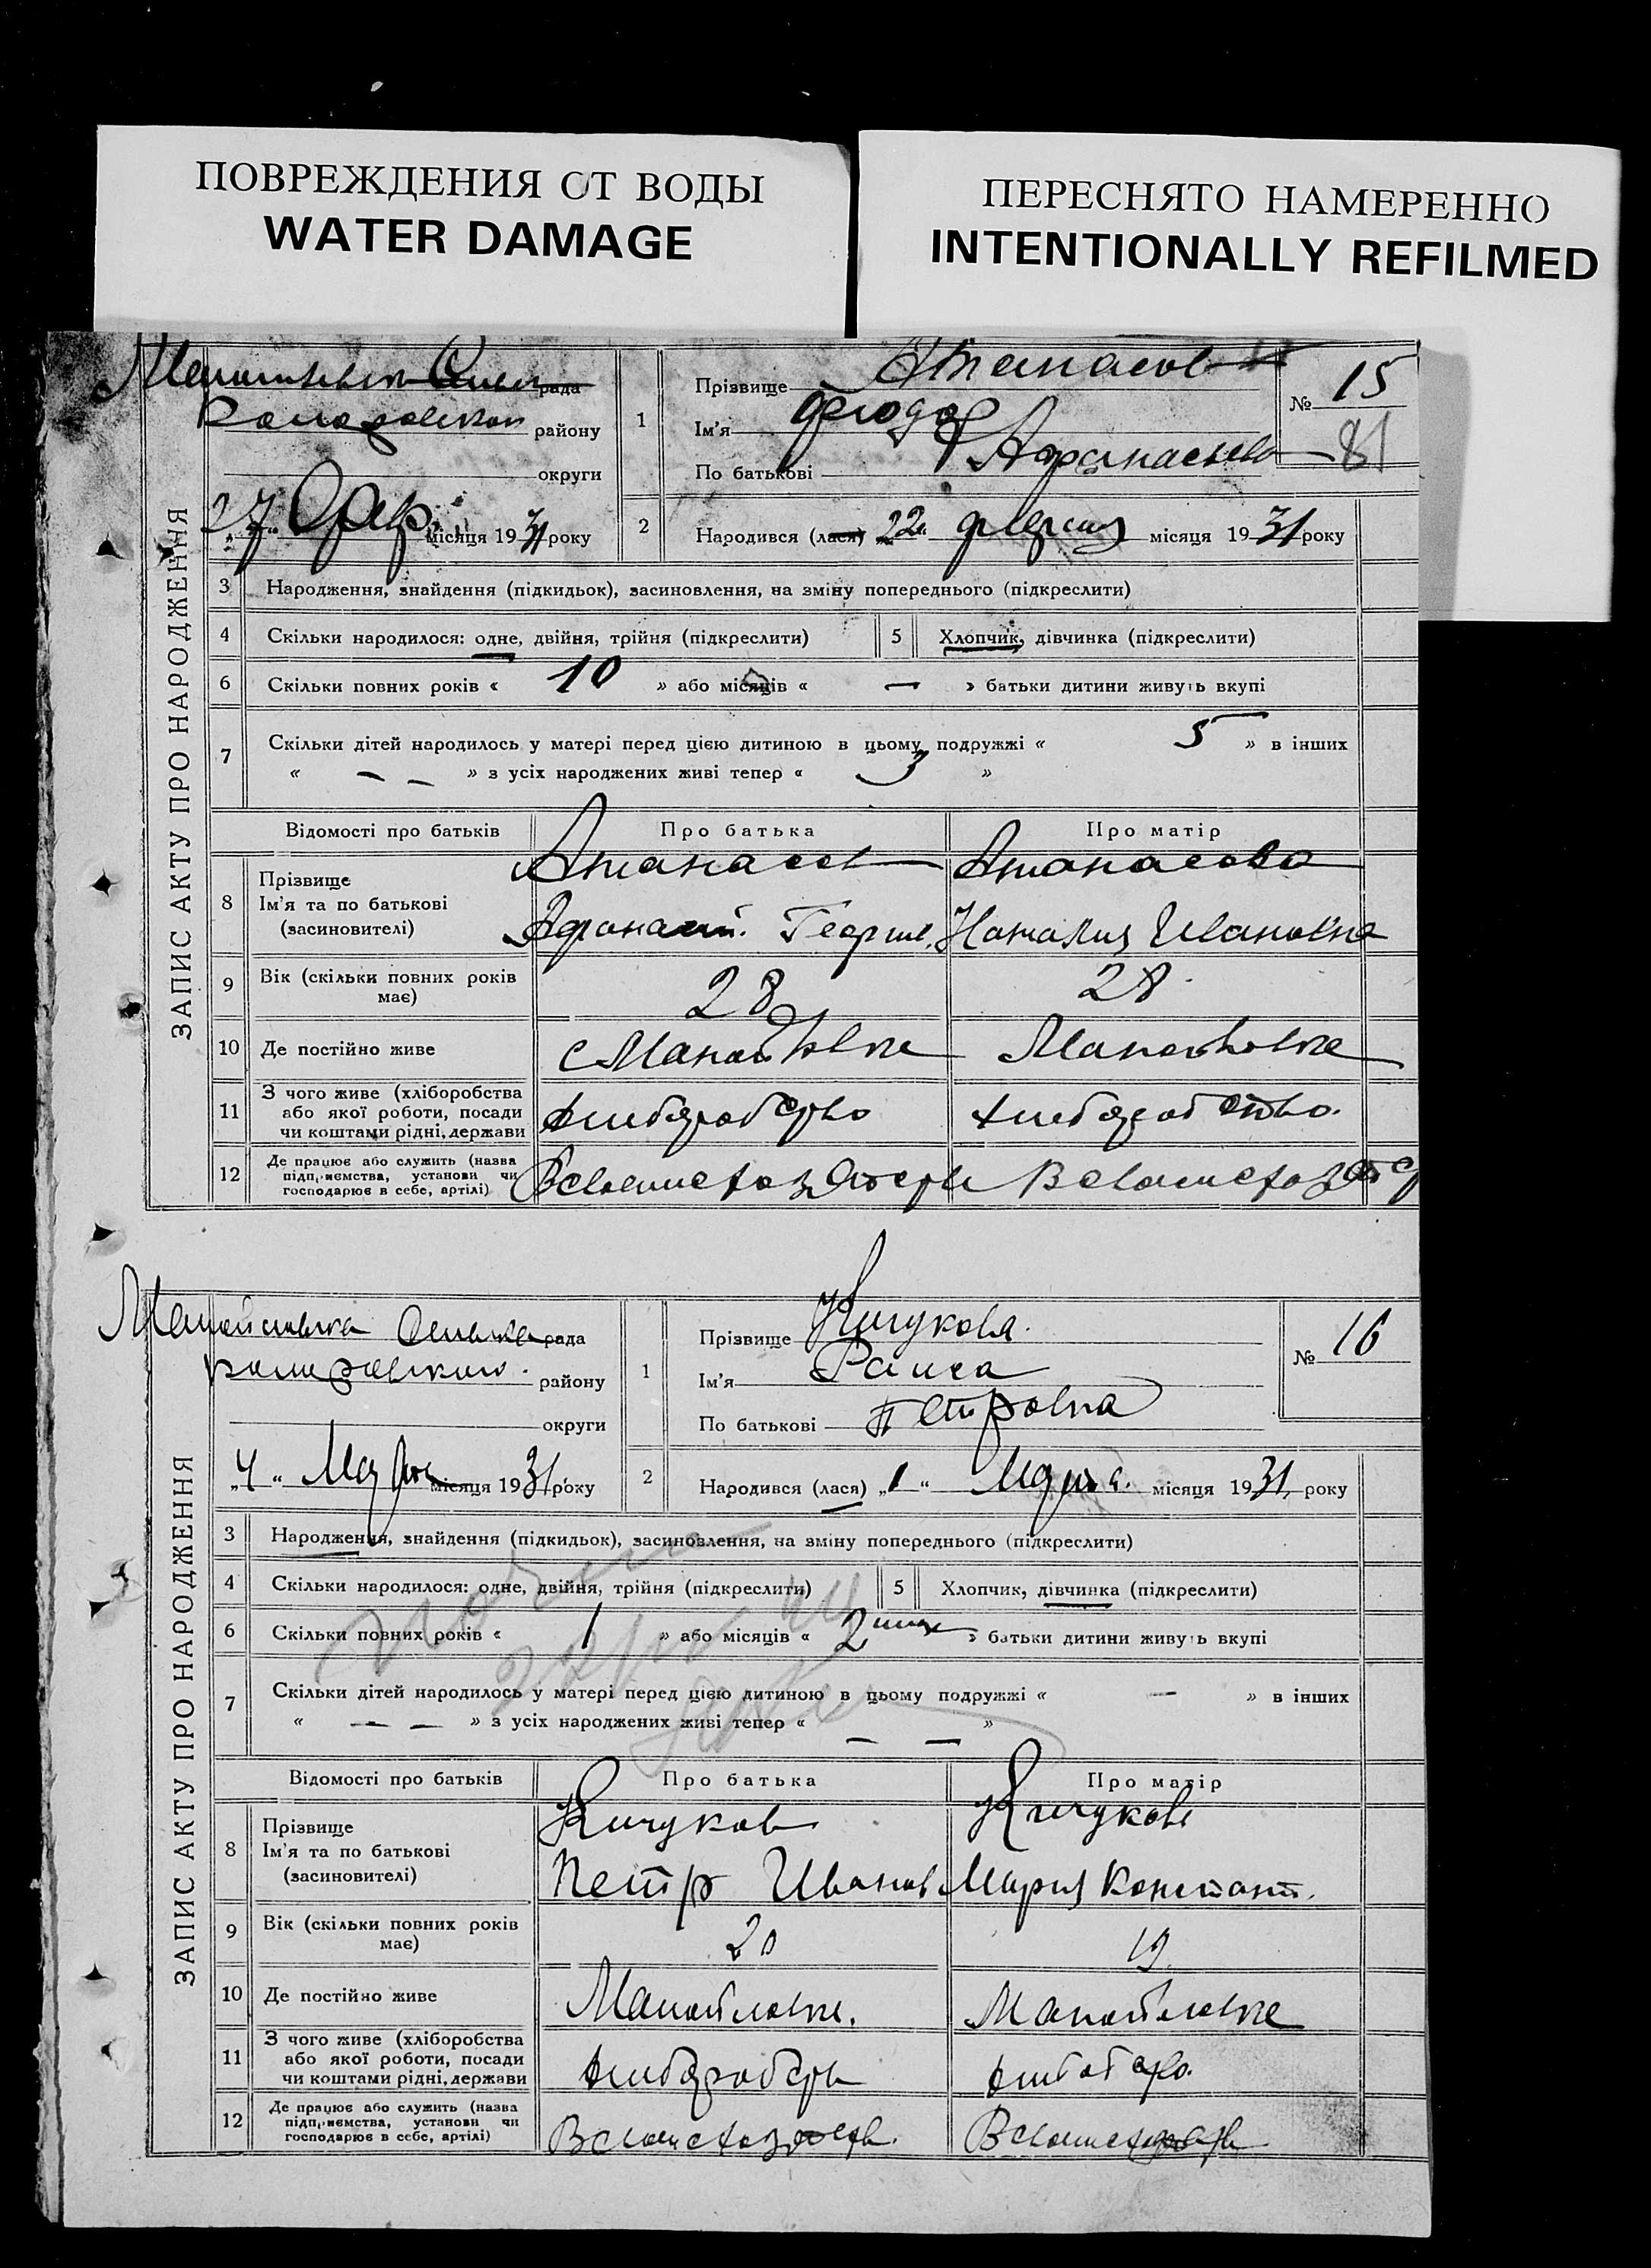 ПОВРЕЖДЕНИЯ ОТ ВОДЫ
WATER DAMAGE
ПЕРЕСНЯТО НАМЕРЕННО
INTENTIONALLY REFILMED
ЗАПИС АКТУ ПРО НАРОДЖЕННЯ
рада
району
округи
27 Февр. місяця 1931 року
1 Прізвище Атанасов
Ім'я Феодор
По батькові Афанасьев
№ 15
81
2 Народився (лася) „22“ февраля місяця 1931 року
3 Народження, знайдення (підкидьок), засиновлення, на зміну попереднього (підкреслити)
4 Скільки народилося: одне, двійня, трійня (підкреслити) 5 Хлопчик, дівчинка (підкреслити)
6 Скільки повних років « 10 » або місяців « — » батьки дитини живуть вкупі
7 Скільки дітей народилось у матері перед цією дитиною в цьому подружжі « 5 » в інших
« — — » з усіх народжених живі тепер « 3 »
Відомості про батьків Про батька Про матір
8 Прізвище Атанасов Атанасова
Ім'я та по батькові
(засиновителі) Афанасий Георгие. Наталия Ивановна
9 Вік (скільки повних років має) 28 28
10 Де постійно живе с Манойловке Манойловке
11 З чого живе (хліборобства
або якої роботи, посади
чи коштами рідні, держави
12 Де працює або служить (назва
підприємства, установи чи
господарює в себе, артілі)
ЗАПИС АКТУ ПРО НАРОДЖЕННЯ
Манойловка рада
району
округи
„4“ Марта місяця 1931 року
1 Прізвище Кичукова
Ім'я Раиса
По батькові Петровна
№ 16
2 Народився (лася) „1“ Марта місяця 1931 року
3 Народження, знайдення (підкидьок), засиновлення, на зміну попереднього (підкреслити)
4 Скільки народилося: одне, двійня, трійня (підкреслити) 5 Хлопчик, дівчинка (підкреслити)
6 Скільки повних років « 1 » або місяців « 2 » батьки дитини живуть вкупі
7 Скільки дітей народилось у матері перед цією дитиною в цьому подружжі « — » в інших
« — — » з усіх народжених живі тепер « — — »
Відомості про батьків Про батька Про матір
8 Прізвище Кичуков Кичукова
Ім'я та по батькові
(засиновителі) Петр Иванов Мария Констант.
9 Вік (скільки повних років має) 20 19
10 Де постійно живе Манойловке. Манойловке
11 З чого живе (хліборобства
або якої роботи, посади
чи коштами рідні, держави
12 Де працює або служить (назва
підприємства, установи чи
господарює в себе, артілі)